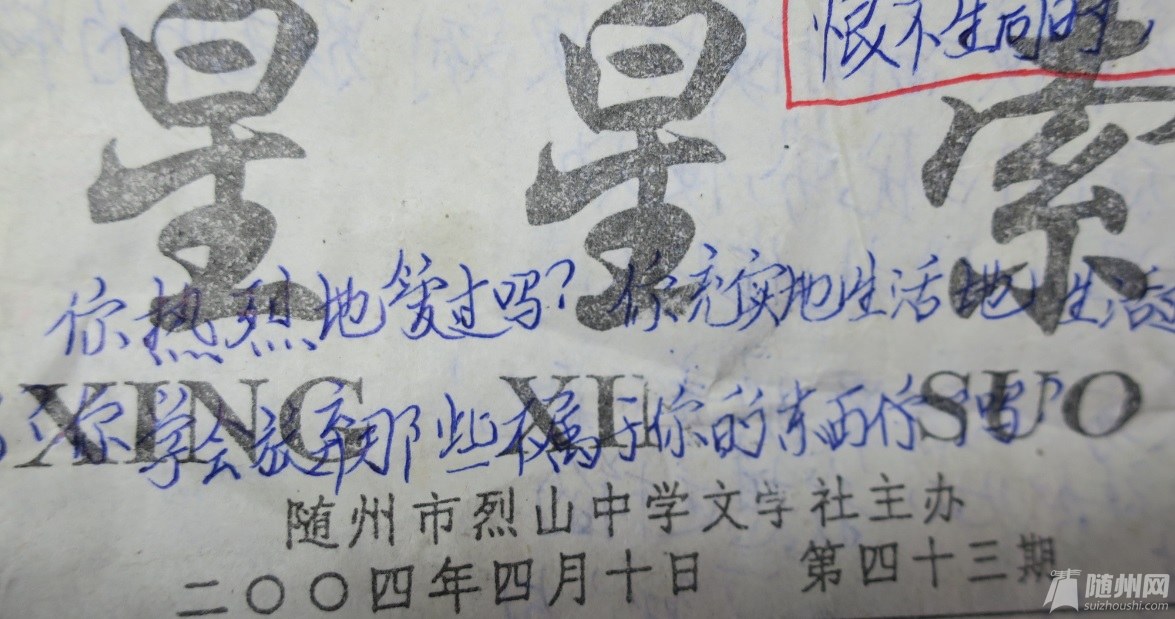 恨不生同时,
星星索
你热烈地爱过吗?你充实地生活地生活
XING XI SUO
你学会放弃那些不属于你的东西你吗?
随州市烈山中学文学社主办
二〇〇四年四月十日 第四十三期
随州网
suizhoushi.com